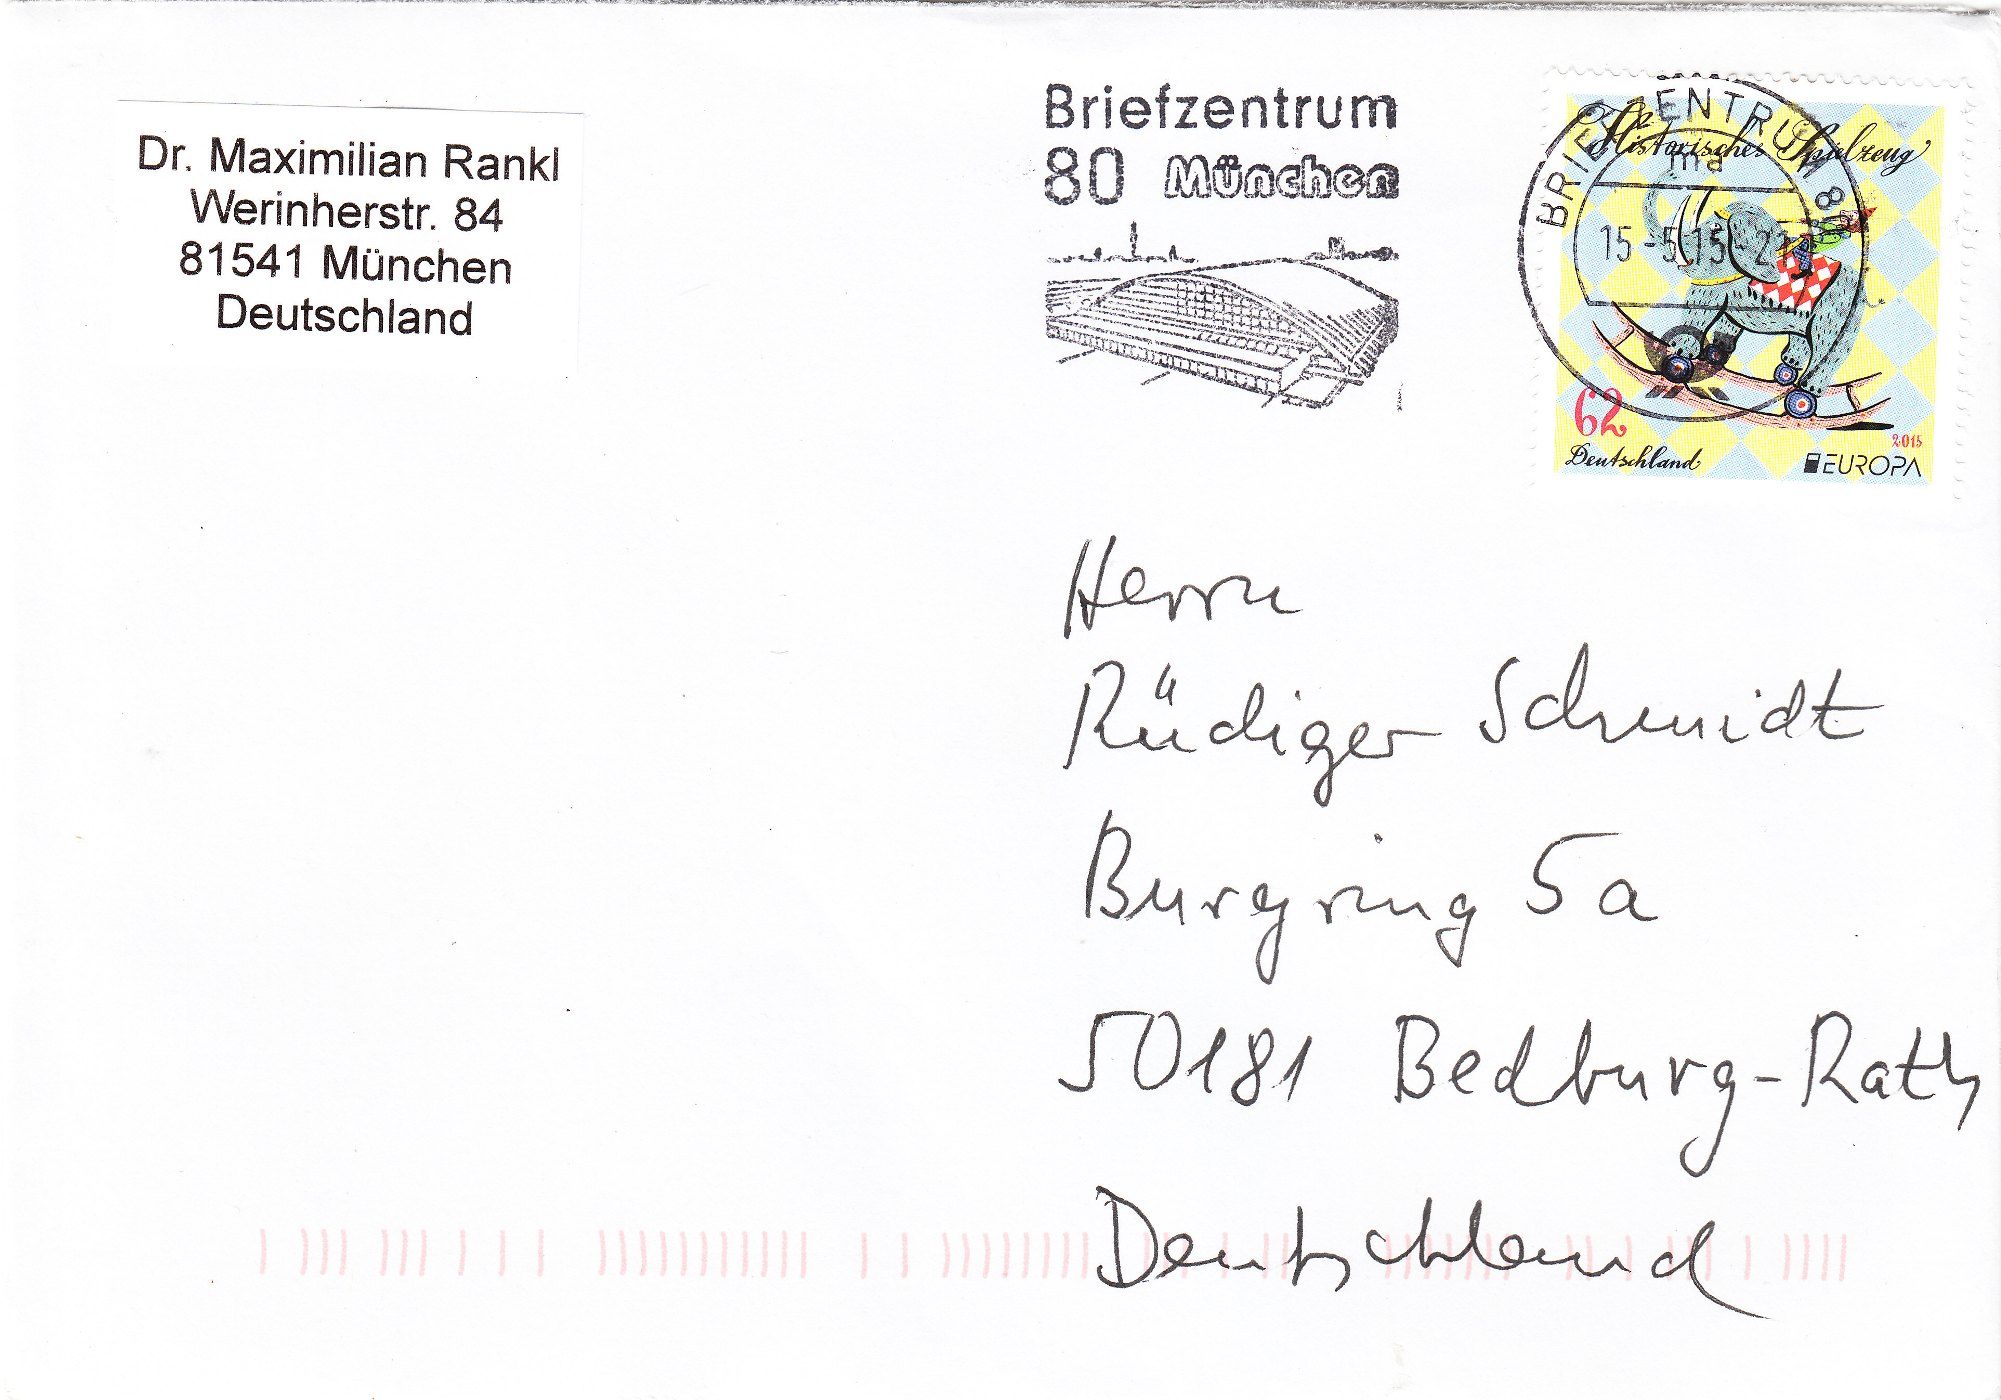 Dr. Maximilian Rankl
Werinherstr. 84
81541 München
Deutschland
Briefzentrum
80 München
BRIEFZENTRUM 80
ma
15-5.15-21
Historisches Spielzeug
62
Deutschland
2015
EUROPA
Herrn
Rüdiger Schmidt
Burgring 5a
50181 Bedburg-Rath
Deutschland